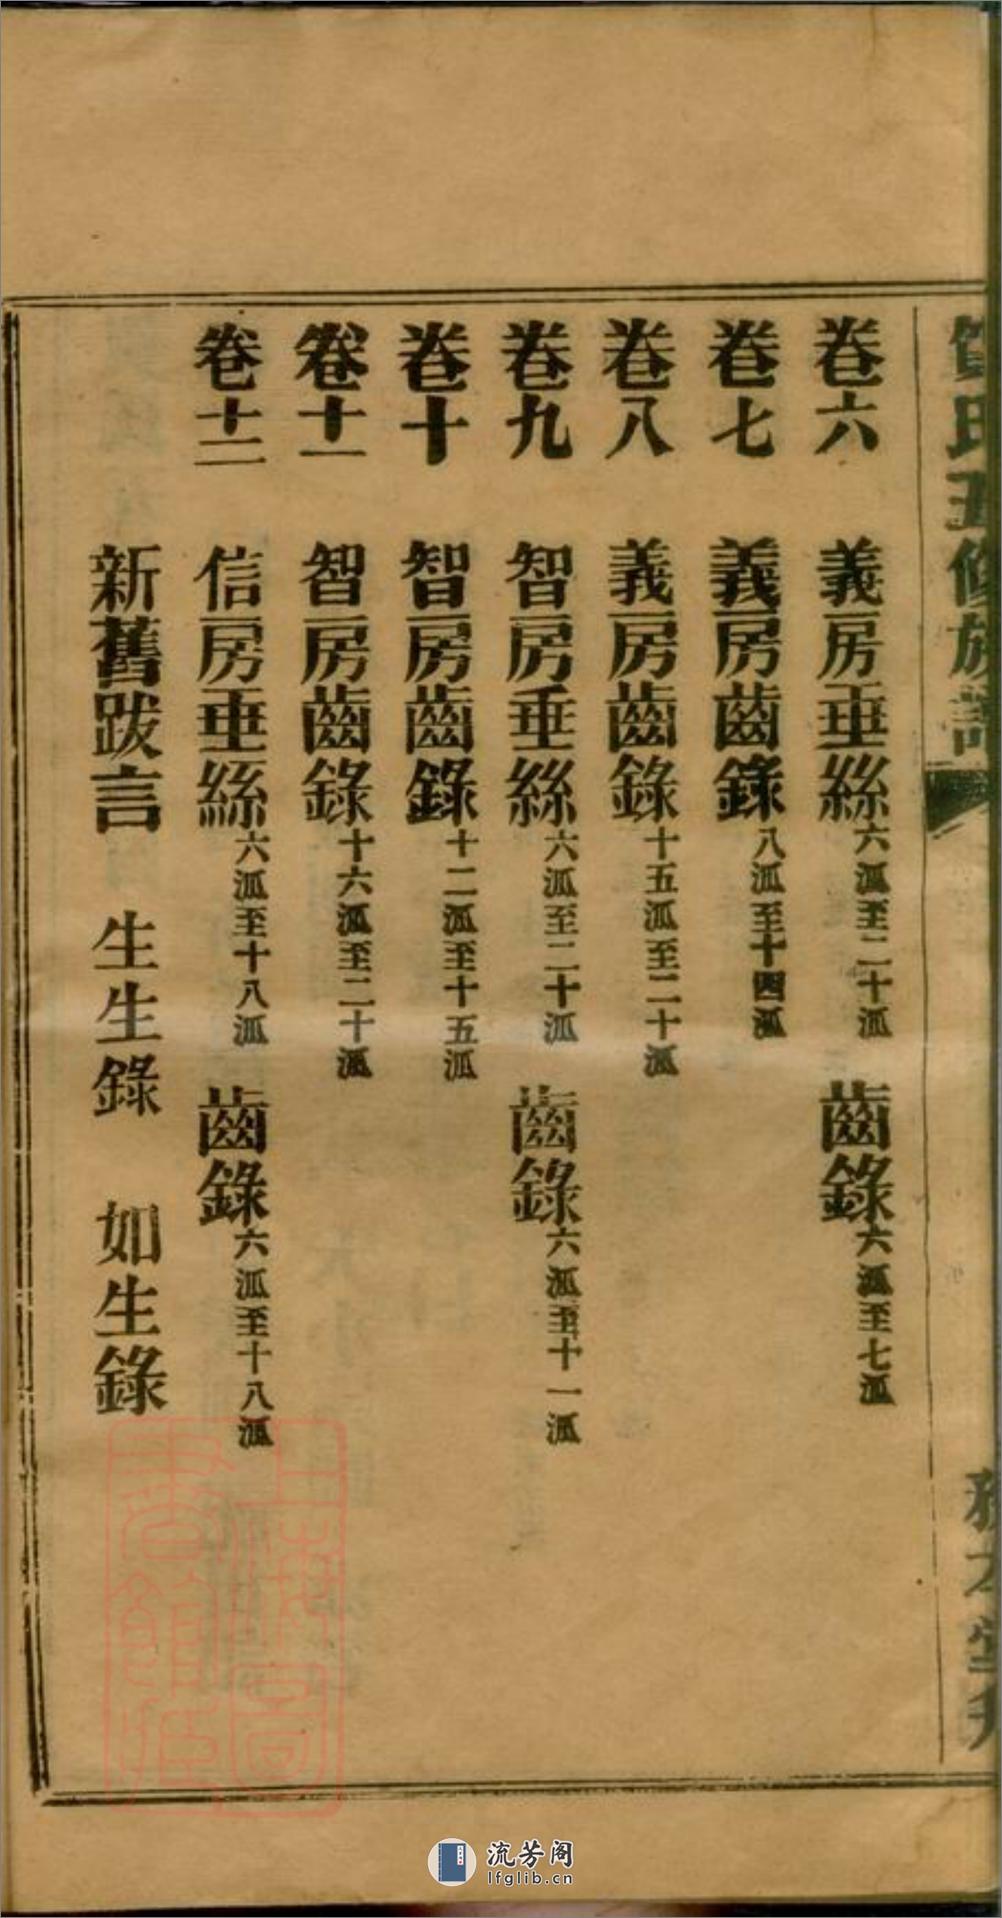 氏五修族譜
卷六 義房垂絲六泒至二十泒 齒錄六泒至七泒
卷七 義房齒錄八泒至十四泒
卷八 義房齒錄十五泒至二十泒
卷九 智房垂絲六泒至二十泒 齒錄六泒至十一泒
卷十 智房齒錄十二泒至十五泒
卷十一 智房齒錄十六泒至二十泒
卷十二 信房垂絲六泒至十八泒 齒錄六泒至十八泒
新舊跋言 生生錄 如生錄
上海圖書館藏
流芳阁
lfglib.cn